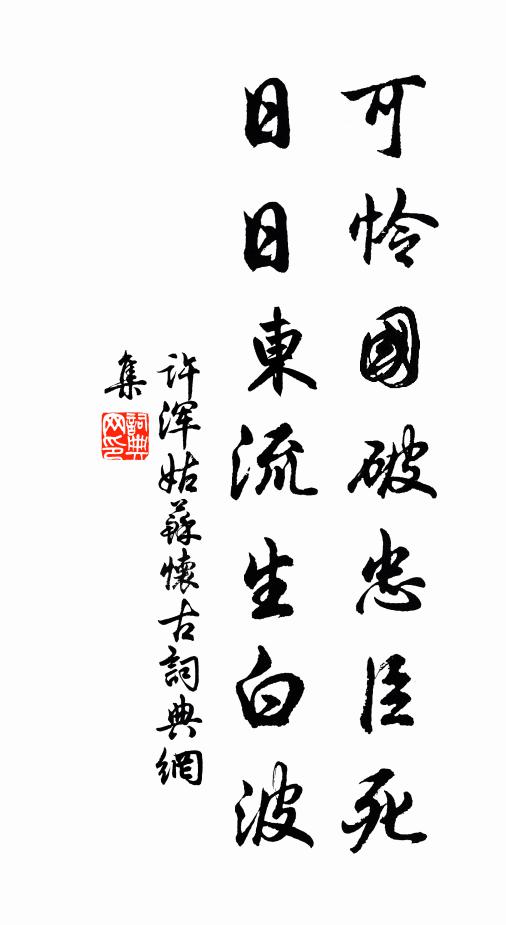 可怜國破忠臣死
日日東流生白波
许浑姑蘇懷古詞典網
集
詞典
网印